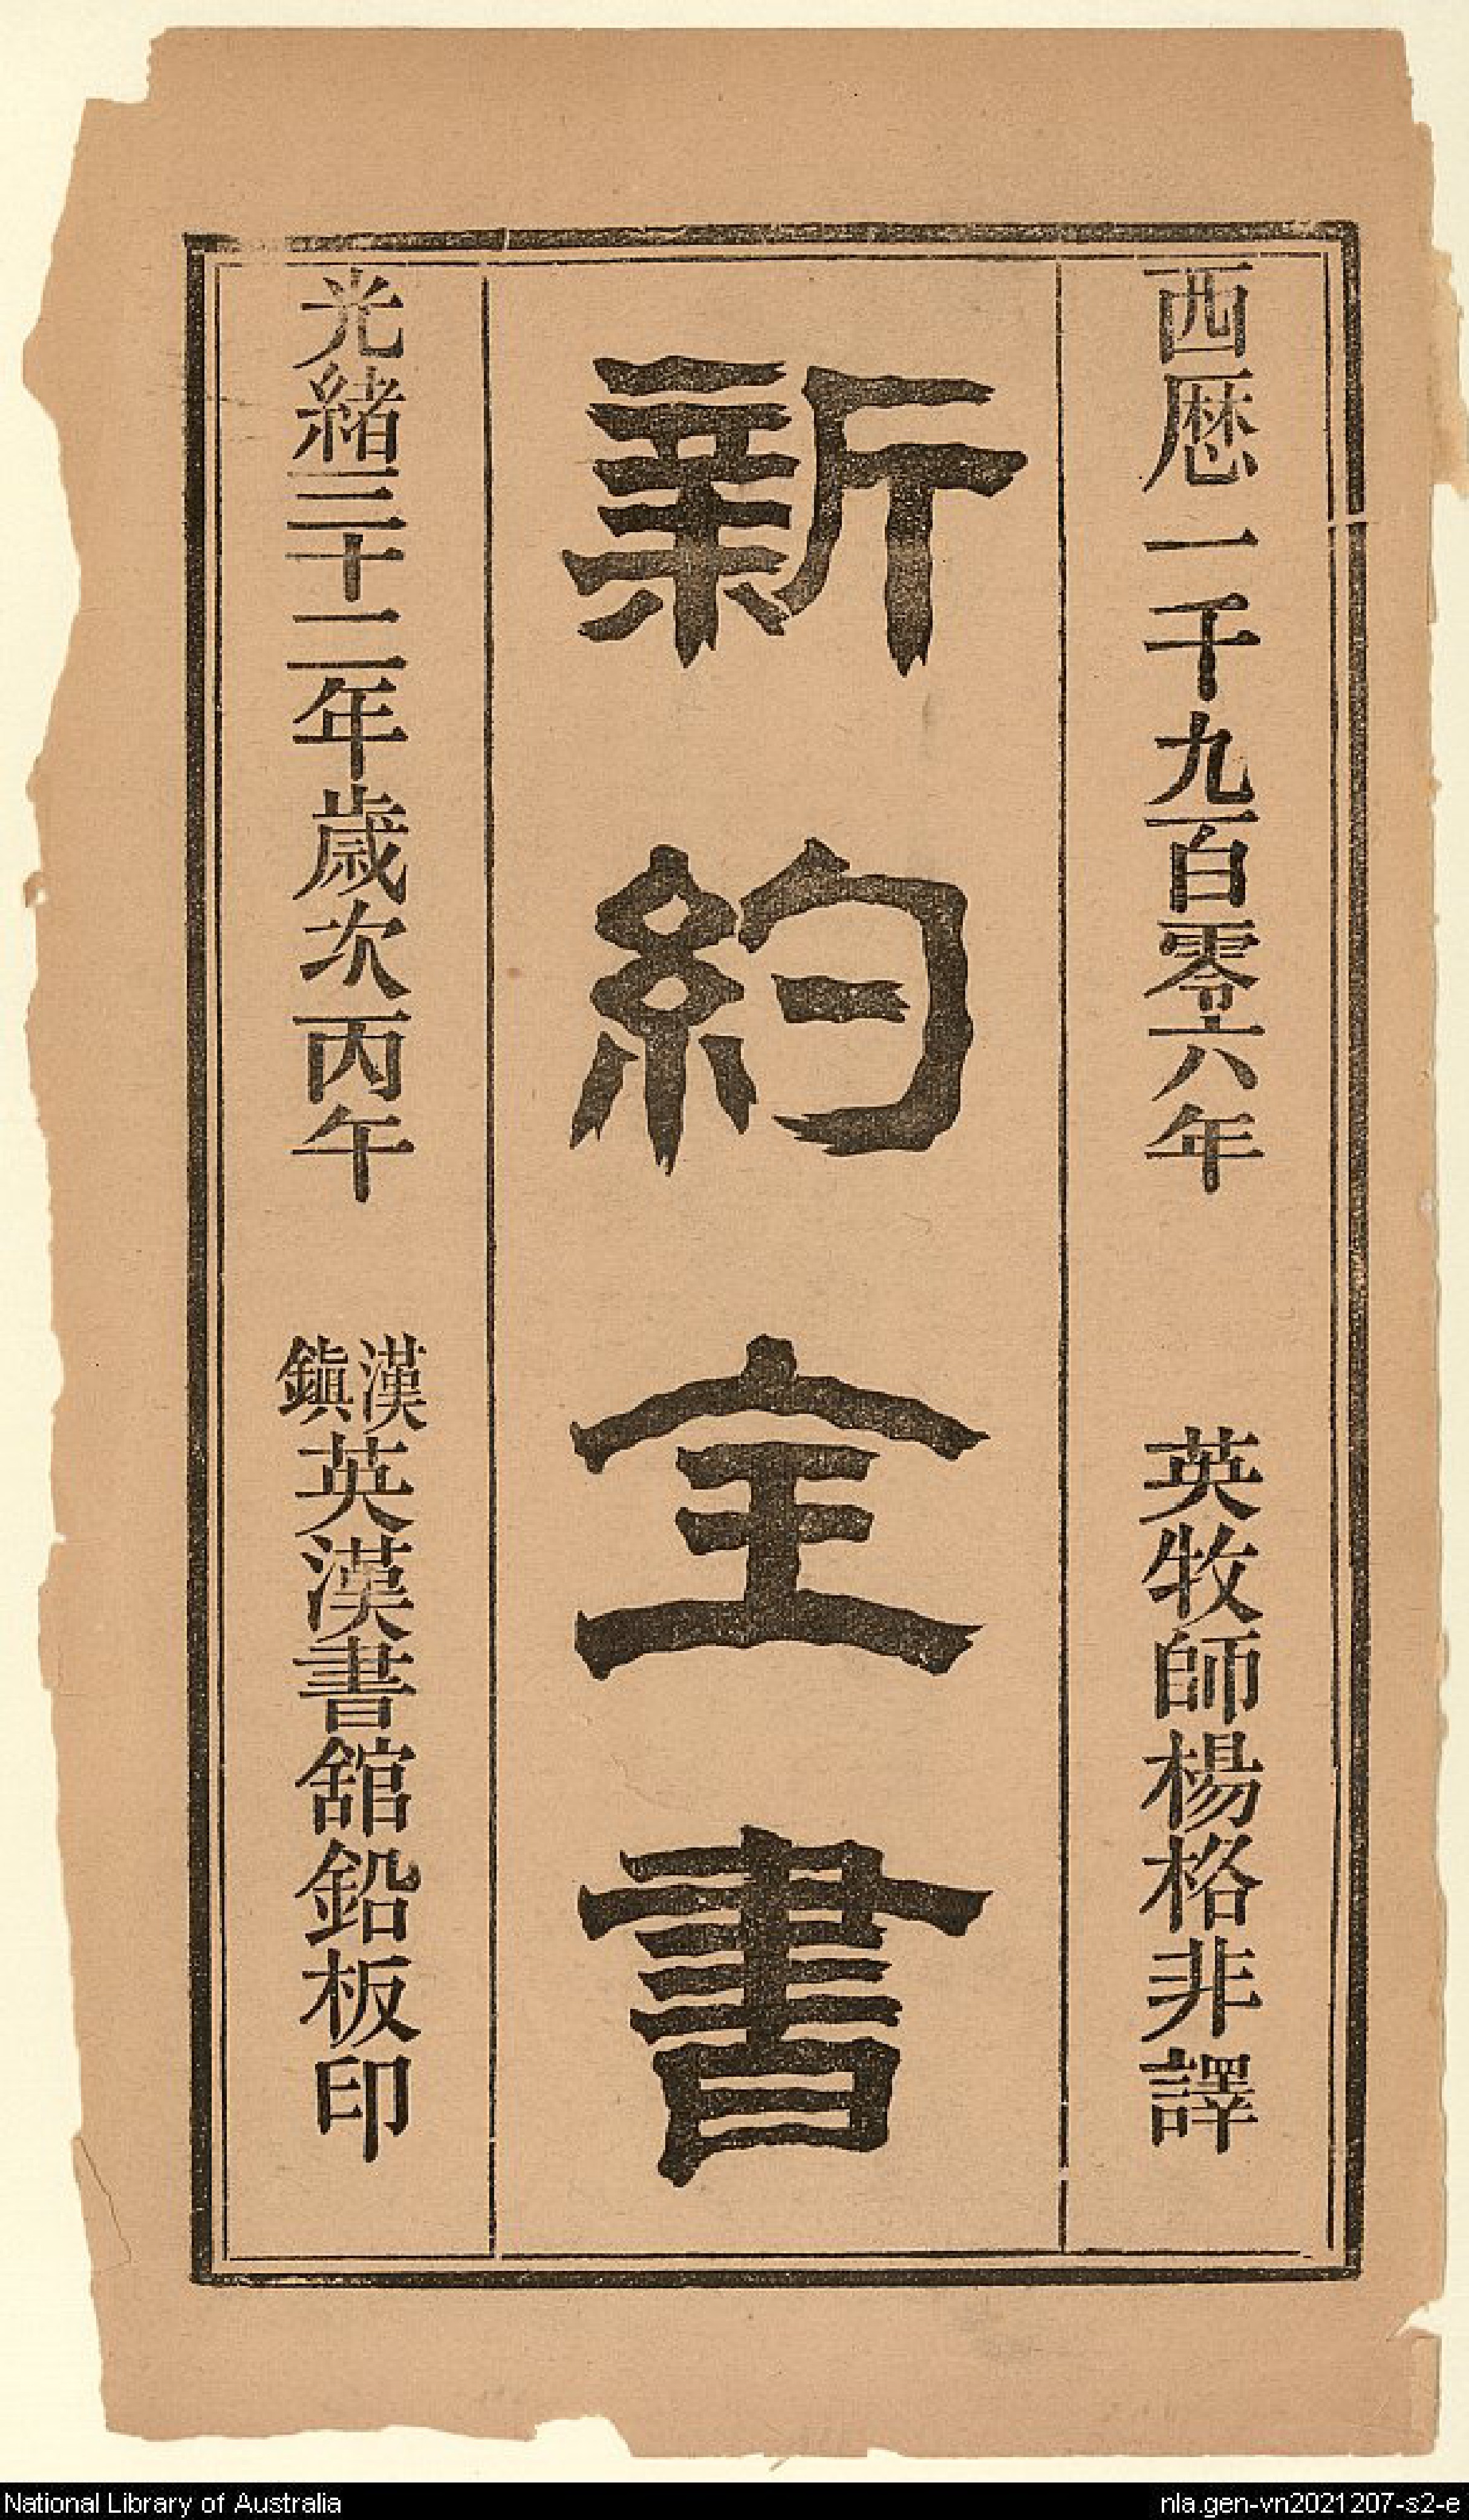 西厯一千九百零六年 英牧師楊格非譯
新約全書
光緒三十二年歲次丙午 漢鎭英漢書舘鉛板印
National Library of Australia
nla.gen-vn2021207-s2-e